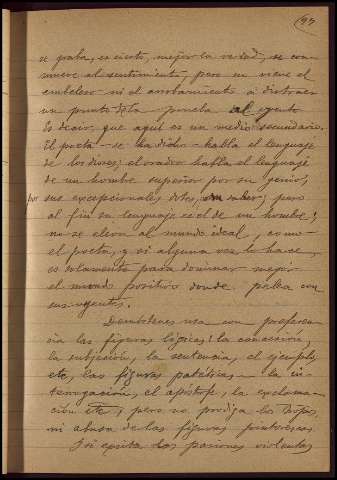 97
se graba, es cierto, mejor la verdad, se con
mueve al sentimiento, pero no viene el
embeleso ni el arrobamiento a distraer
un punto de la prueba al oyente
Es decir, que aquí es un medio secundario.
El poeta — se ha dicho — habla el lenguaje
de los dioses; el orador habla el lenguaje
de un hombre superior por su genio,
por sus excepcionales dotes, su saber; pero
al fin su lenguaje es el de un hombre;
no se eleva al mundo ideal, como
el poeta, y si alguna vez lo hace,
es solamente para dominar mejor
el mundo positivo donde pelea con
sus oyentes.
Demóstenes usa con preferen
cia las figuras lógicas: la concesión,
la subjeción, la sentencia, el ejemplo,
etc, las figuras patéticas — la in-
terrogación, el apóstrofe, la exclama-
ción etc; pero no prodiga los tropos,
ni abusa de las figuras pintorescas.
Si excita las pasiones violentas